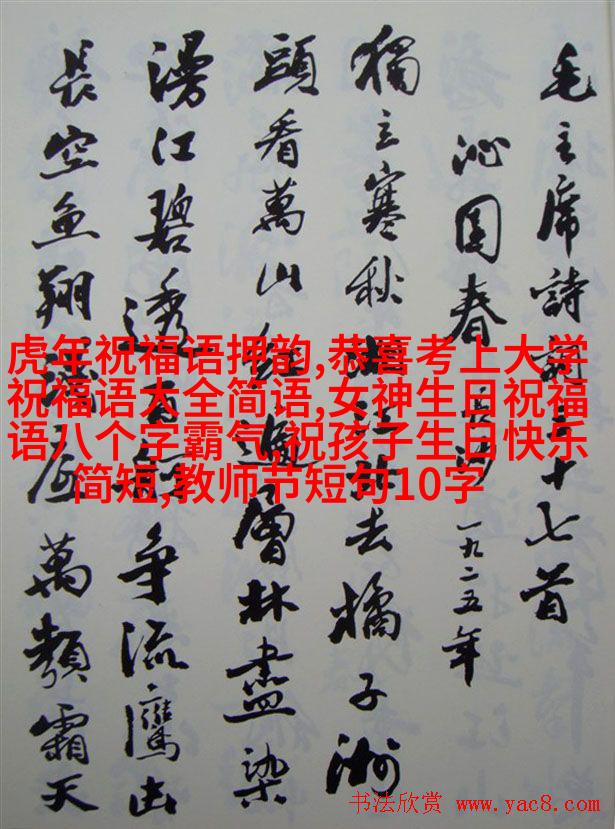 毛主席詩詞三十七首
沁园春 长沙 一九二五年
獨立寒秋湘江北去橘子洲
頭看萬山红遍層林盡染
漫江碧透百舸争流鷹击
長空鱼翔浅底萬類霜天
虎年祝福语押韵,恭喜考上大学
祝福语大全简语,女神生日祝福
语八个字霸气,祝孩子生日快乐
简短,教师节短句10字
书法欣赏 www.yac8.com